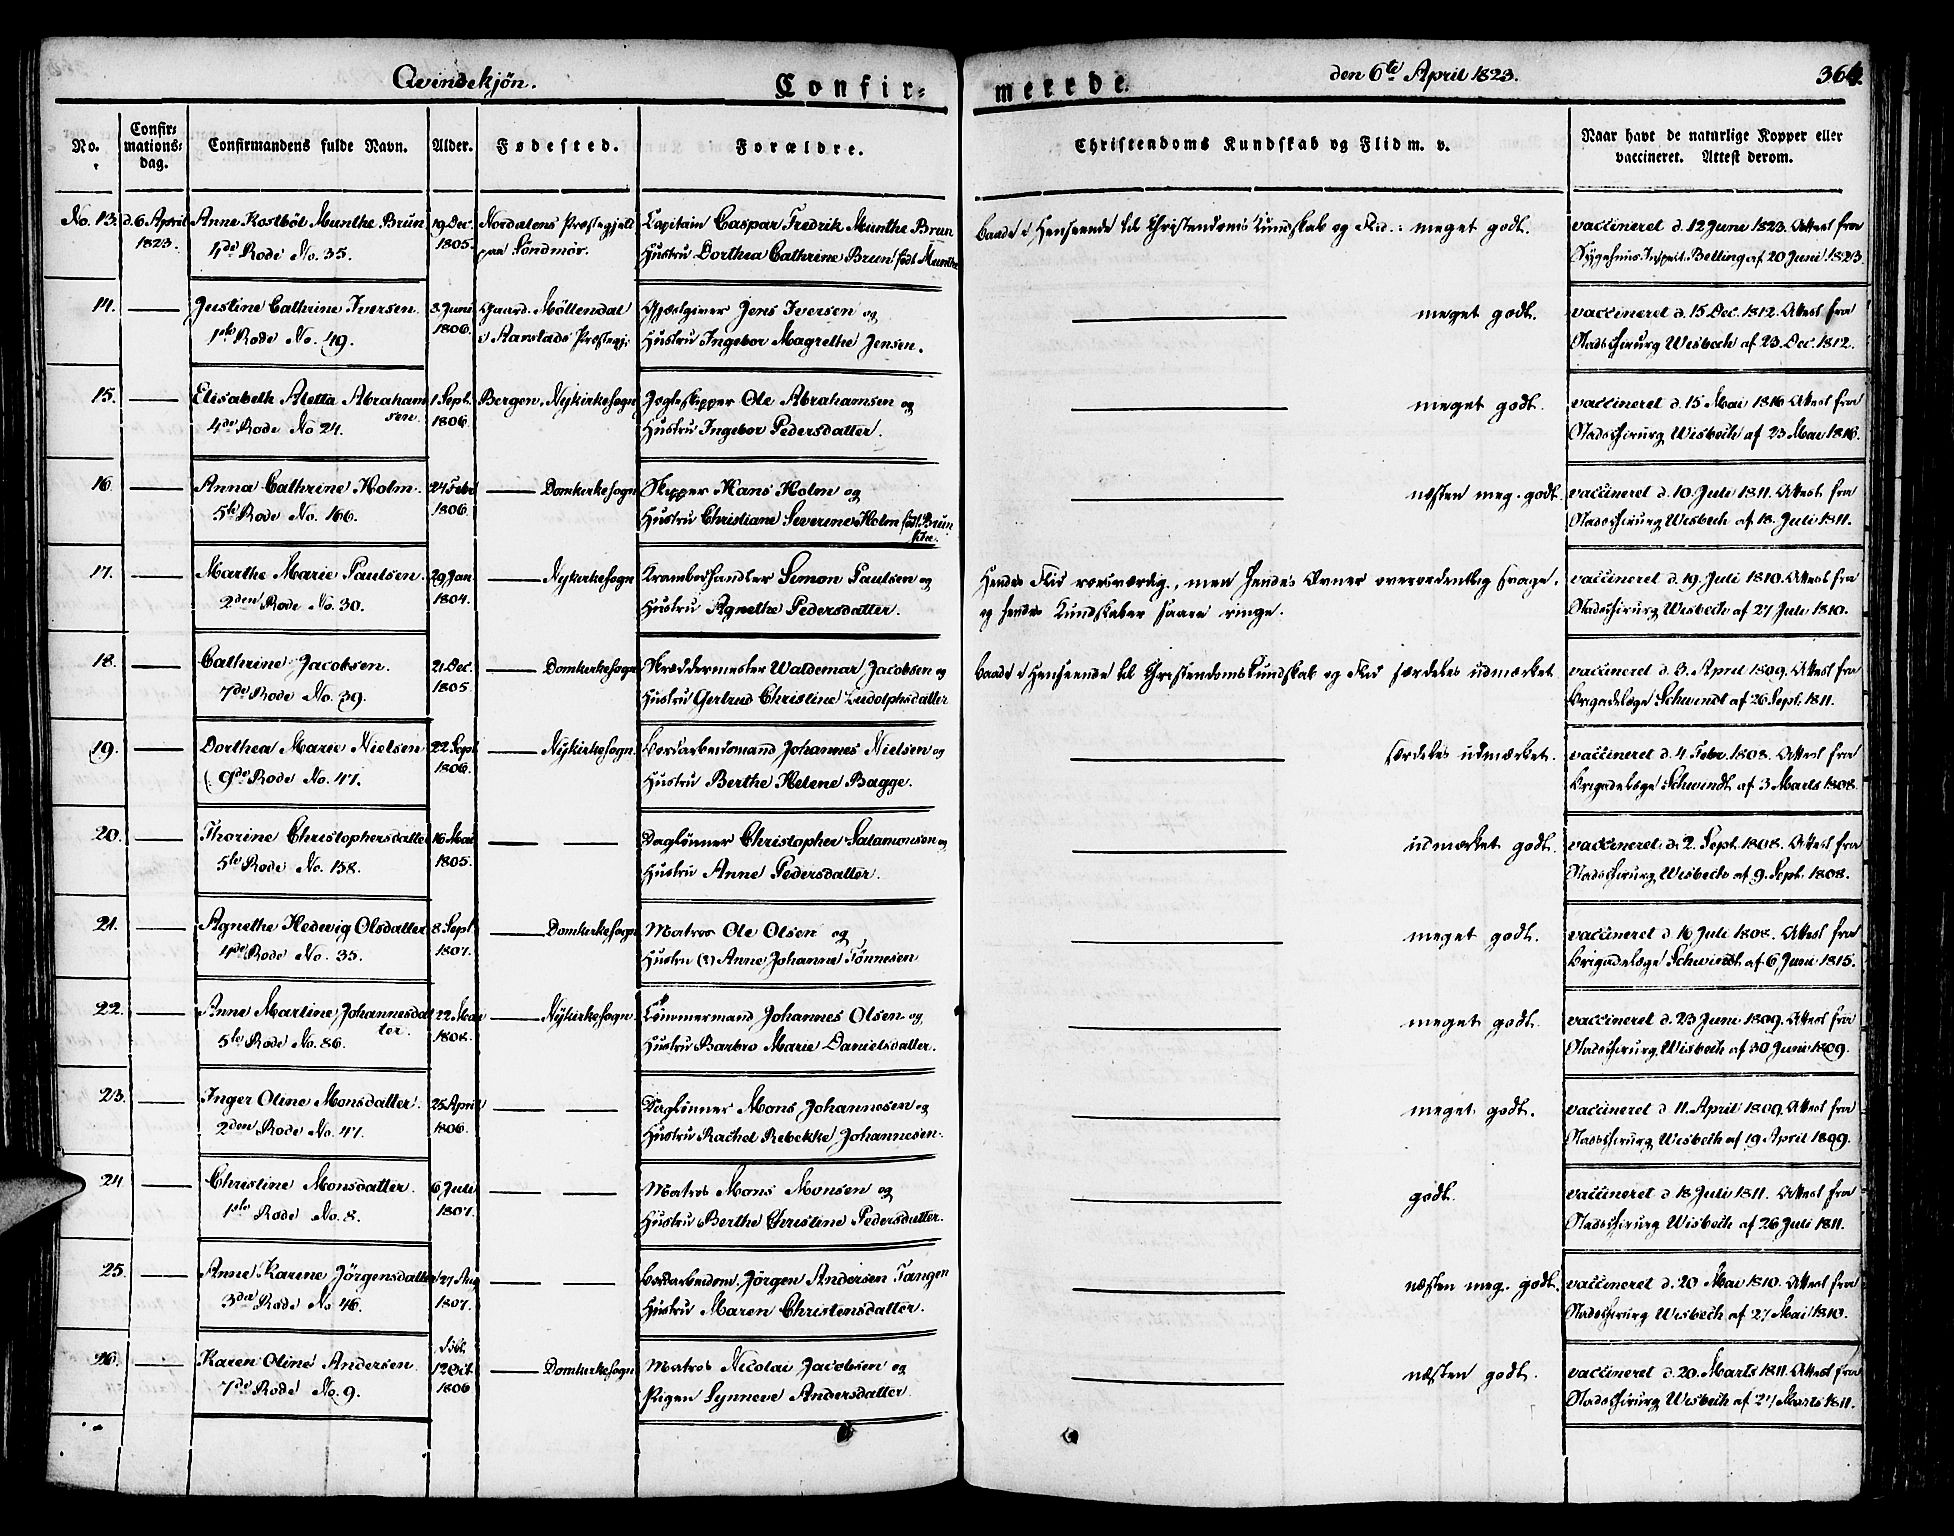 Qvindekjøn.
Confir=
merede.
den 6te April 1823.
364.
No.
Confir=
mations=
dag.
Confirmandens fulde Navn.
Alder.
Fødested.
Forældre.
Christendoms Kundskab og Flid m. v.
Naar havt de naturlige Kopper eller
vaccineret. Attest derom.
No. 13. d. 6 April Anne Rostböl Munthe Brun 19 Dec. Nordalens Præstegjeld Capitain Caspar Fredrik Munthe Brun Baade i Henseende til Christendoms Kundskab og Flid: meget godt. vaccineret d. 12 June 1823. Attest fra
1823. 4de Rode No. 35. 1805. paa Söndmör. Hustru Dorthea Cathrine Brun født Munthe Sygehuus Inspect. Belling af 20 Juni 1823.
14. Justine Cathrine Iversen. 3. Juni Gaard. Möllendal Gjæstgiver Jens Iversen og meget godt. vaccineret d. 15 Dec. 1812. Attest fra
1ste Rode No. 49. 1806. i Aarstads Præstegj: Hustru Ingebor Magrethe Jensen. Stadschirurg Wisbech af 23. Dec. 1812.
15. Elisabeth Aletta Abraham 1 Sept. Bergen, Nykirkesogn Jagteskipper Ole Abrahamsen og meget godt. vaccineret d. 15 Mai 1816 Attest fra
4de Rode No 24. sen. 1806. Hustru Ingebor Pedersdatter. Stadschirurg Wisbech af 23 Mai 1816.
16 Anna Cathrine Holm. 24 Febr Domkirkesogn Skipper Hans Holm og næsten meg. godt. vaccineret d. 10. Juli 1811. Attest fra
5te Rode No. 166. 1806. Hustru Christiane Severine Holm født Brun Stadschirurg Wisbech af 18. Juli 1811.
17. Marthe Marie Paulsen. 29 Jan. Nykirkesogn Kramboehandler Simon Paulsen og Hendes Flid roesværdig, men hendes Evner overordentlig svage, vaccineret d. 19. Juli 1810. Attest fra
2den Rode No. 30. 1804. Hustru Agnethe Pedersdatter. og hendes Kundskaber saare ringe. Stadschirurg Wisbech af 27 Juli 1810.
18. Cathrine Jacobsen. 21 Dec. Domkirkesogn Skreddermester Waldemar Jacobsen og Baade i Henseende til Christendomskundskab og Flid særdeles udmærket vaccineret d. 3. April 1809. Attest fra
7de Rode No. 39. 1805. Hustru Gertrud Christine Ludolphsdatter Brigadelæge Schwindt af 26 Sept. 1811.
19. Dorthea Marie Nielsen 22 Sept Nykirkesogn. Bordarbeidsmand Johannes Nielsen og særdeles udmærket. vaccineret d. 4 Febr. 1808. Attest fra
9de Rode No. 47. 1806. Hustru Berthe Helene Bagge. Brigadelæge Schwindt af 3 Marts 1808.
20. Thorine Christophersdatter 16 Mai Daglönner Christopher Salamonsen og udmærket godt. vaccineret d. 2. Sept. 1808. Attest fra
5te Rode No. 158. 1805. Hustru Anne Pedersdatter. Stadschirurg Wisbech af 9. Sept. 1808.
21. Agnethe Hedevig Olsdatter 8 Sept Domkirkesogn Matros Ole Olsen og meget godt. vaccineret d 16 Juli 1808. Attest fra
4de Rode No. 35. 1807. Hustru (?) Anne Johanne Tönnesen Brigadelæge Schwindt af 6 Juni 1815.
22. Anne Martine Johannesdat 22 Mai Nykirkesogn. Tömmermand Johannes Olsen og meget godt. vaccineret d. 23 Juni 1809. Attest fra
5te Rode No. 86. ter. 1808. Hustru Barbro Marie Danielsdatter. Stadschirurg Wisbech af 30 Juni 1809.
23. Inger Oline Monsdatter. 25 April Daglönner Mons Johannesen og meget godt. vaccineret d 11. April 1809. Attest fra
2den Rode No. 47. 1806. Hustru Rachel Rebekke Johannesen. Stadschirurg Wisbech af 19 April 1899.
24 Christine Monsdatter. 6 Juli Matros Mons Monsen og godt. vaccineret d 18 Juli 1811. Attest fra
1ste Rode No. 8. 1807. Hustru Berthe Christine Pedersdatter. Stadschirurg Wisbech af 26 Juli 1811.
25. Anne Karine Jörgensdatter 27 Aug Bordarbeidsm. Jörgen Andersen Tangen næsten meg. godt. vaccineret d. 20 Mai 1810. Attest fra
3die Rode No 46. 1807. Hustru Maren Christensdatter. Stadschirurg Wisbech af 27 Mai 1810.
26. Karen Oline Andersen. døbt. 12 Oct. Domkirkesogn Matros Nicolai Jacobsen og næsten godt. vaccineret d. 20. Marts 1811. Attest fra
7de Rode No. 9. 1806 Pigen Synneve Andersdatter. Stadschirurg Wisbech af 27 Marts 1811.